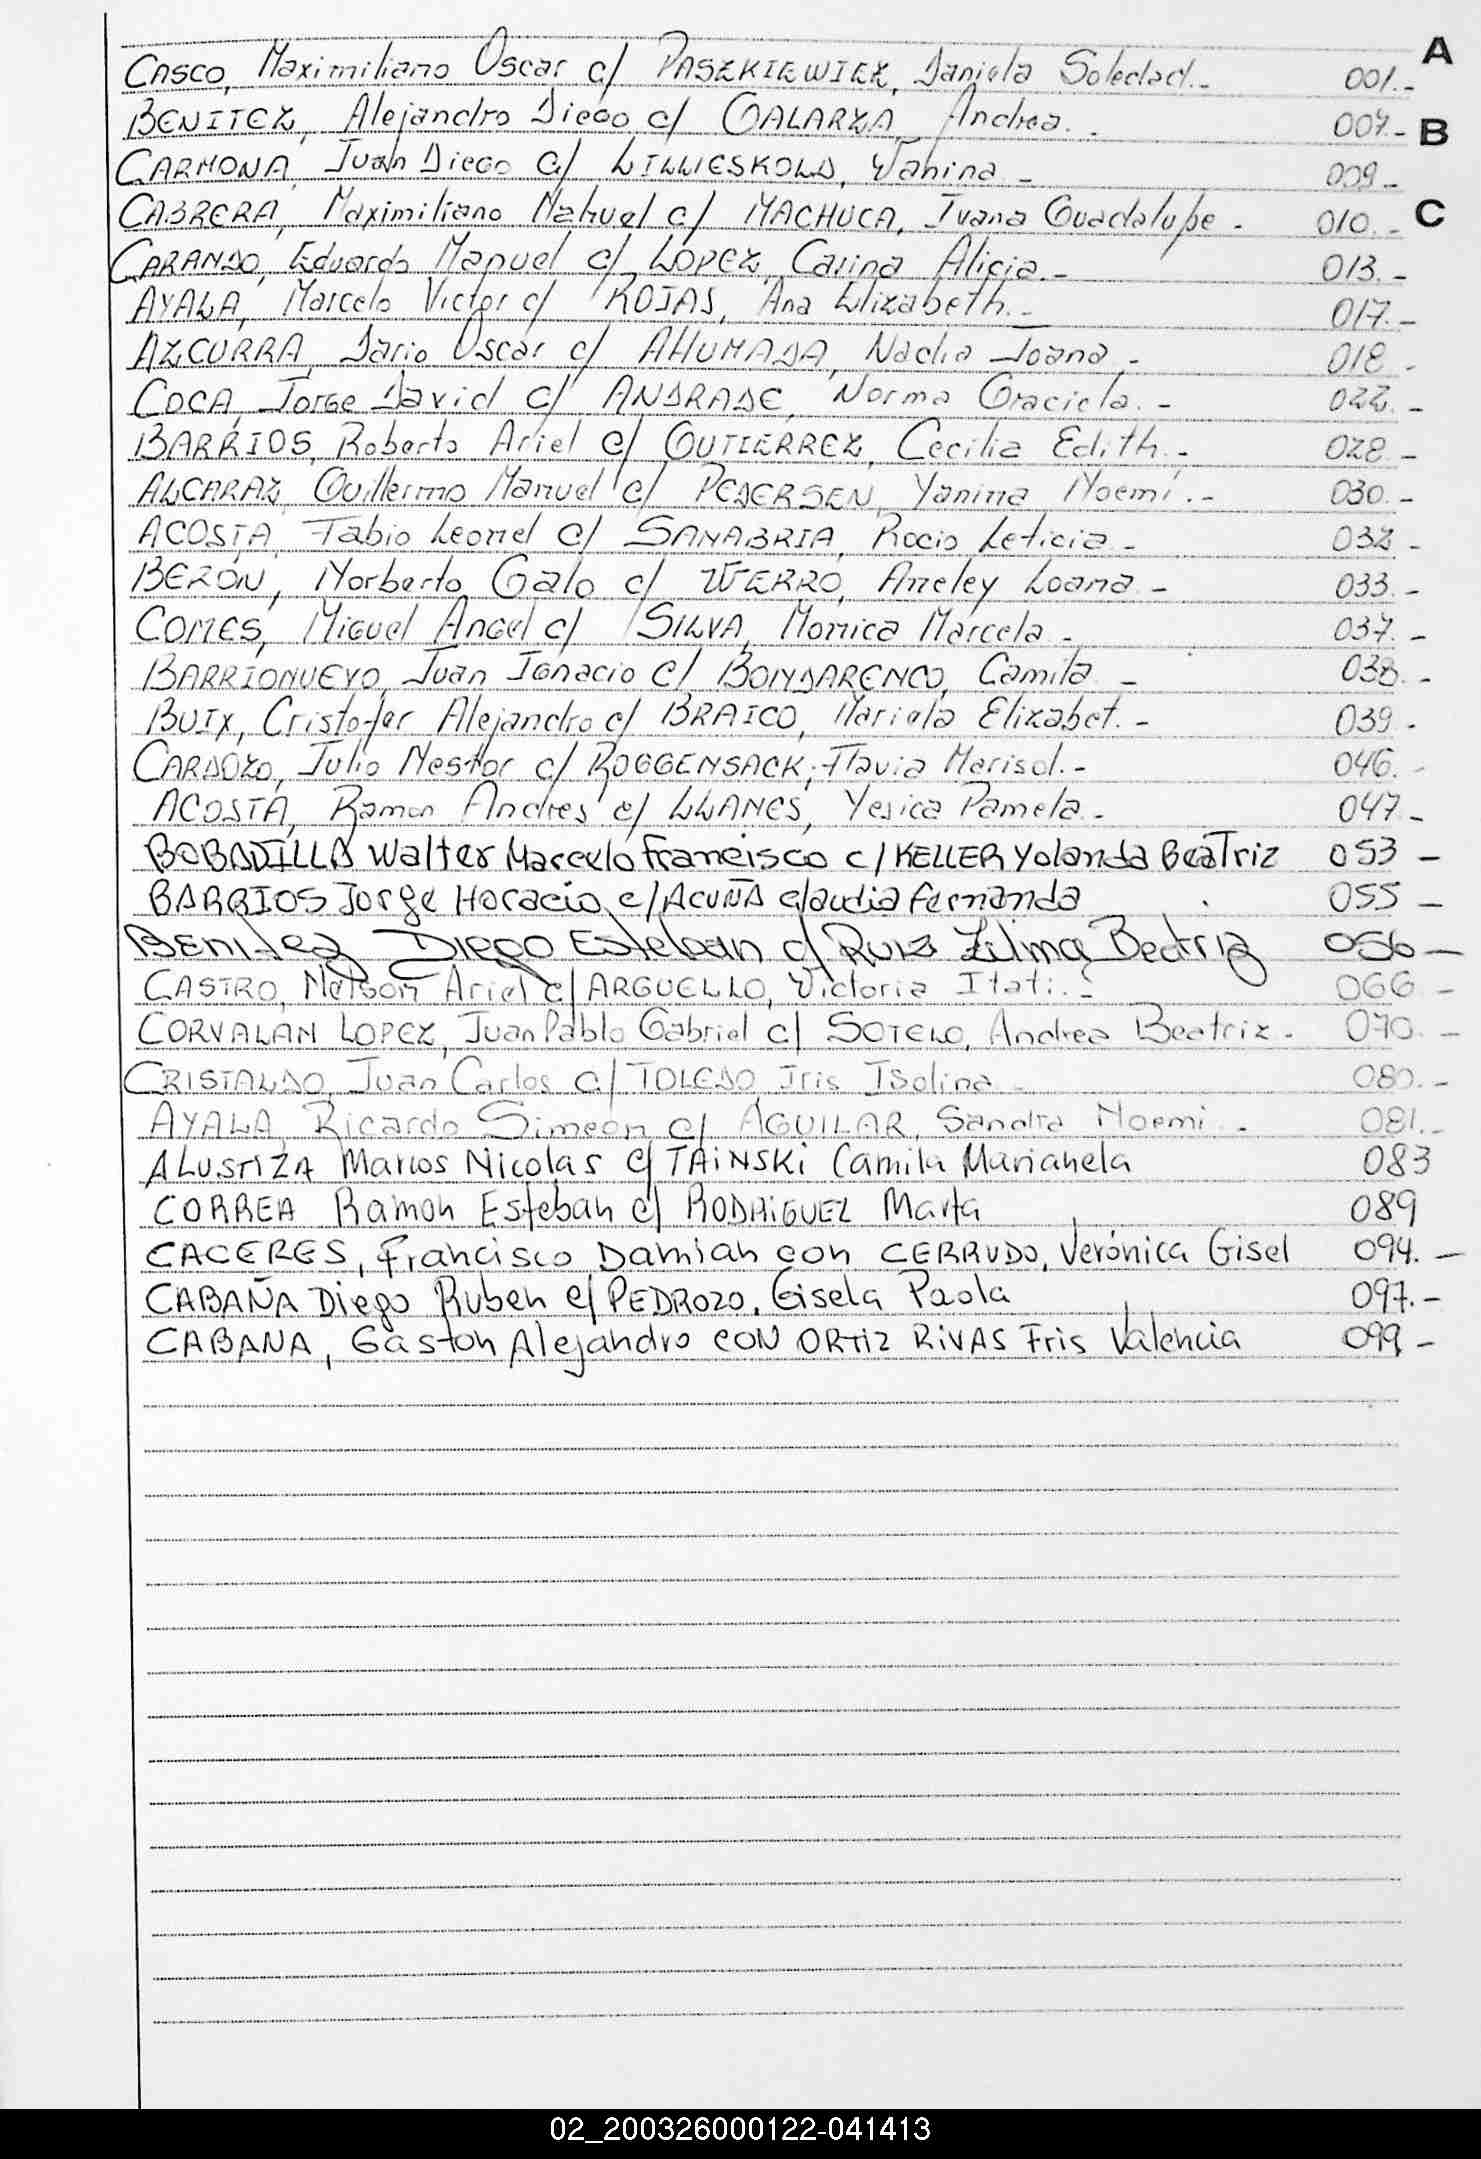 A
CASCO, Maximiliano Oscar c/ PASZKIEWIEZ, Daniela Soledad.- 001.-
BENITEZ, Alejandro Diego c/ GALARZA, Andrea.- 007.- B
CARMONA, Juan Diego c/ Vanina.- 009.-
CABRERA, Maximiliano Nahuel c/ MACHUCA, Ivana Guadalupe.- 010.- C
CARANDO, Eduardo Manuel c/ LOPEZ, Carina Alicia.- 013.-
AYALA, Marcelo Victor c/ ROJAS, Ana Elizabeth.- 017.-
AZCURRA, Dario Oscar c/ AHUMADA, Nadia Joana.- 018.-
COCA, Jorge David c/ ANDRADE, Norma Graciela.- 022.-
BARRIOS, Roberto Ariel c/ GUTIERREZ, Cecilia Edith.- 028.-
ALCARAZ, Guillermo Manuel c/ PEDERSEN, Yanina Noemí.- 030.-
ACOSTA, Fabio Leonel c/ SANABRIA, Rocio Leticia.- 032.-
BEZÓN, Norberto Galo c/ WERRO, Aneley Loana.- 033.-
COMES, Miguel Angel c/ SILVA, Monica Marcela.- 037.-
BARRIONUEVO, Juan Ignacio c/ BONDARENCO, Camila.- 038.-
BUIX, Cristofer Alejandro c/ BRAICO, Mariela Elizabet.- 039.-
CARDOZO, Julio Nestor c/ ROGGENSACK, Flavia Marisol.- 046.-
ACOSTA, Ramon Andres c/ LLANES, Yesica Pamela.- 047.-
BOBADILLA Walter Marcelo Francisco c/ KELLER Yolanda Beatriz 053 -
BARRIOS Jorge Horacio c/ ACUÑA Claudia Fernanda 055 -
BENITEZ DIEGO Esteban c/ RUIZ Zilma Beatriz 056 -
CASTRO, Nelson Ariel c/ ARGUELLO, Victoria Itati.- 066.-
CORVALAN LOPEZ, Juan Pablo Gabriel c/ SOTELO, Andrea Beatriz.- 070.-
CRISTALDO, Juan Carlos c/ TOLEDO, Iris Isolina.- 080.-
AYALA, Ricardo Simeon c/ AGUILAR, Sandra Noemi.- 081.-
ALUSTIZA Marcos Nicolas c/ TAINSKI Camila Marianela 083
CORREA Ramon Esteban c/ RODRIGUEZ Marta 089
CACERES, Francisco Damian con CERRUDO, Verónica Gisel 094.-
CABAÑA Diego Ruben c/ PEDROZO, Gisela Paola 097.-
CABAÑA, Gaston Alejandro CON ORTIZ RIVAS Fris Valencia 099 -
02_200326000122-041413